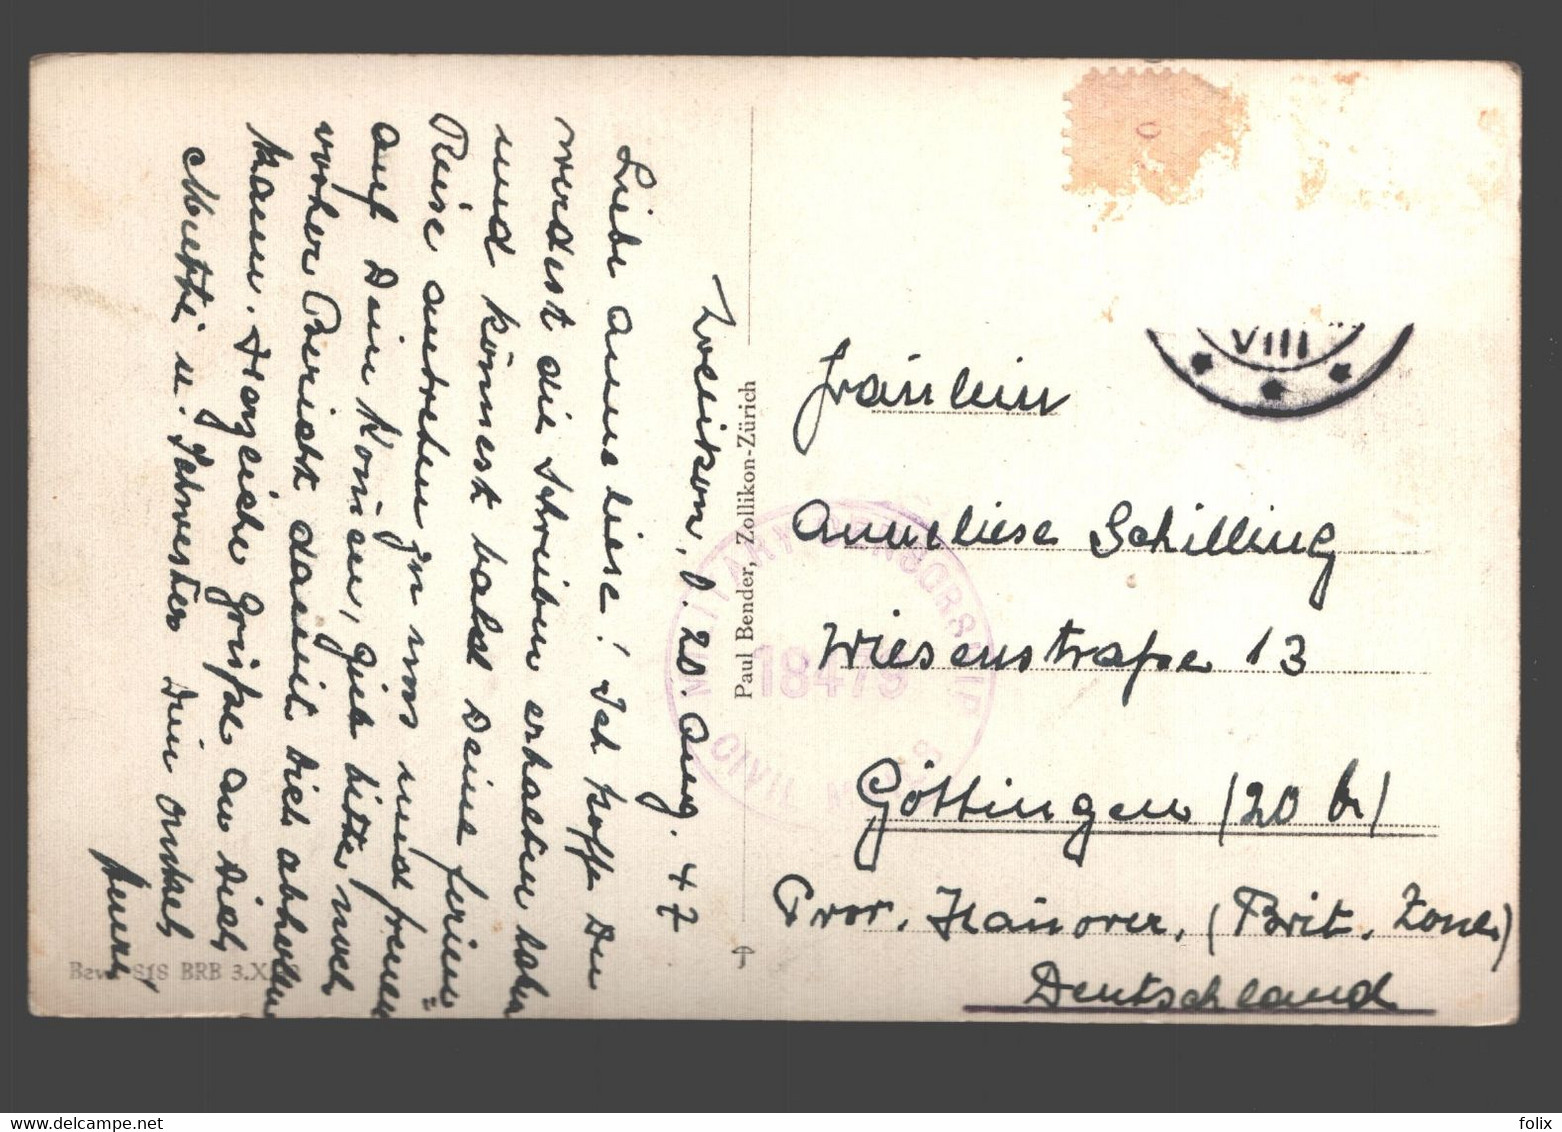 Zollikon, d. 20. Aug. 47
Liebe Anneliese! Ich hoffe Du
werdest die Schreiben erhalten haben
und könnest bald Deine Ferien=
Reise antreten zu uns und freuen
auf Dein Kommen, gieb bitte noch
vorher Bericht damit Dich abholen
kann. Herzliche Grüsse an Dich
Mutti u. Schwester Dein Onkel
Paul Bender, Zollikon-Zürich
818 BRB 3.X.
VIII
Fräulein
Anneliese Schilling
Wiesenstraße 13
Göttingen (20 b)
Prov. Hannover, (Brit. Zone)
Deutschland
MILITARY CENSORSHIP
CIVIL MAILS
felix